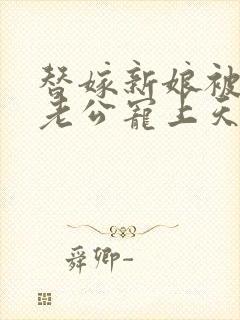 替嫁新娘被
老公宠上天
舜卿-